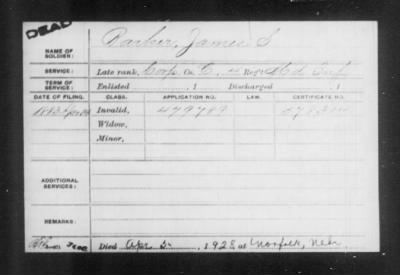 DEAD
NAME OF SOLDIER: Parker, James S
SERVICE: Late rank, Corp. Co. C, 4 Reg't Md. Inf.
TERM OF SERVICE: Enlisted , 1 Discharged , 1
DATE OF FILING. CLASS. APPLICATION NO. LAW. CERTIFICATE NO.
1883 Invalid, 479789
Widow,
Minor,
ADDITIONAL SERVICES:
REMARKS:
Died Apr. 2, 1928, at Norfolk, Nebr